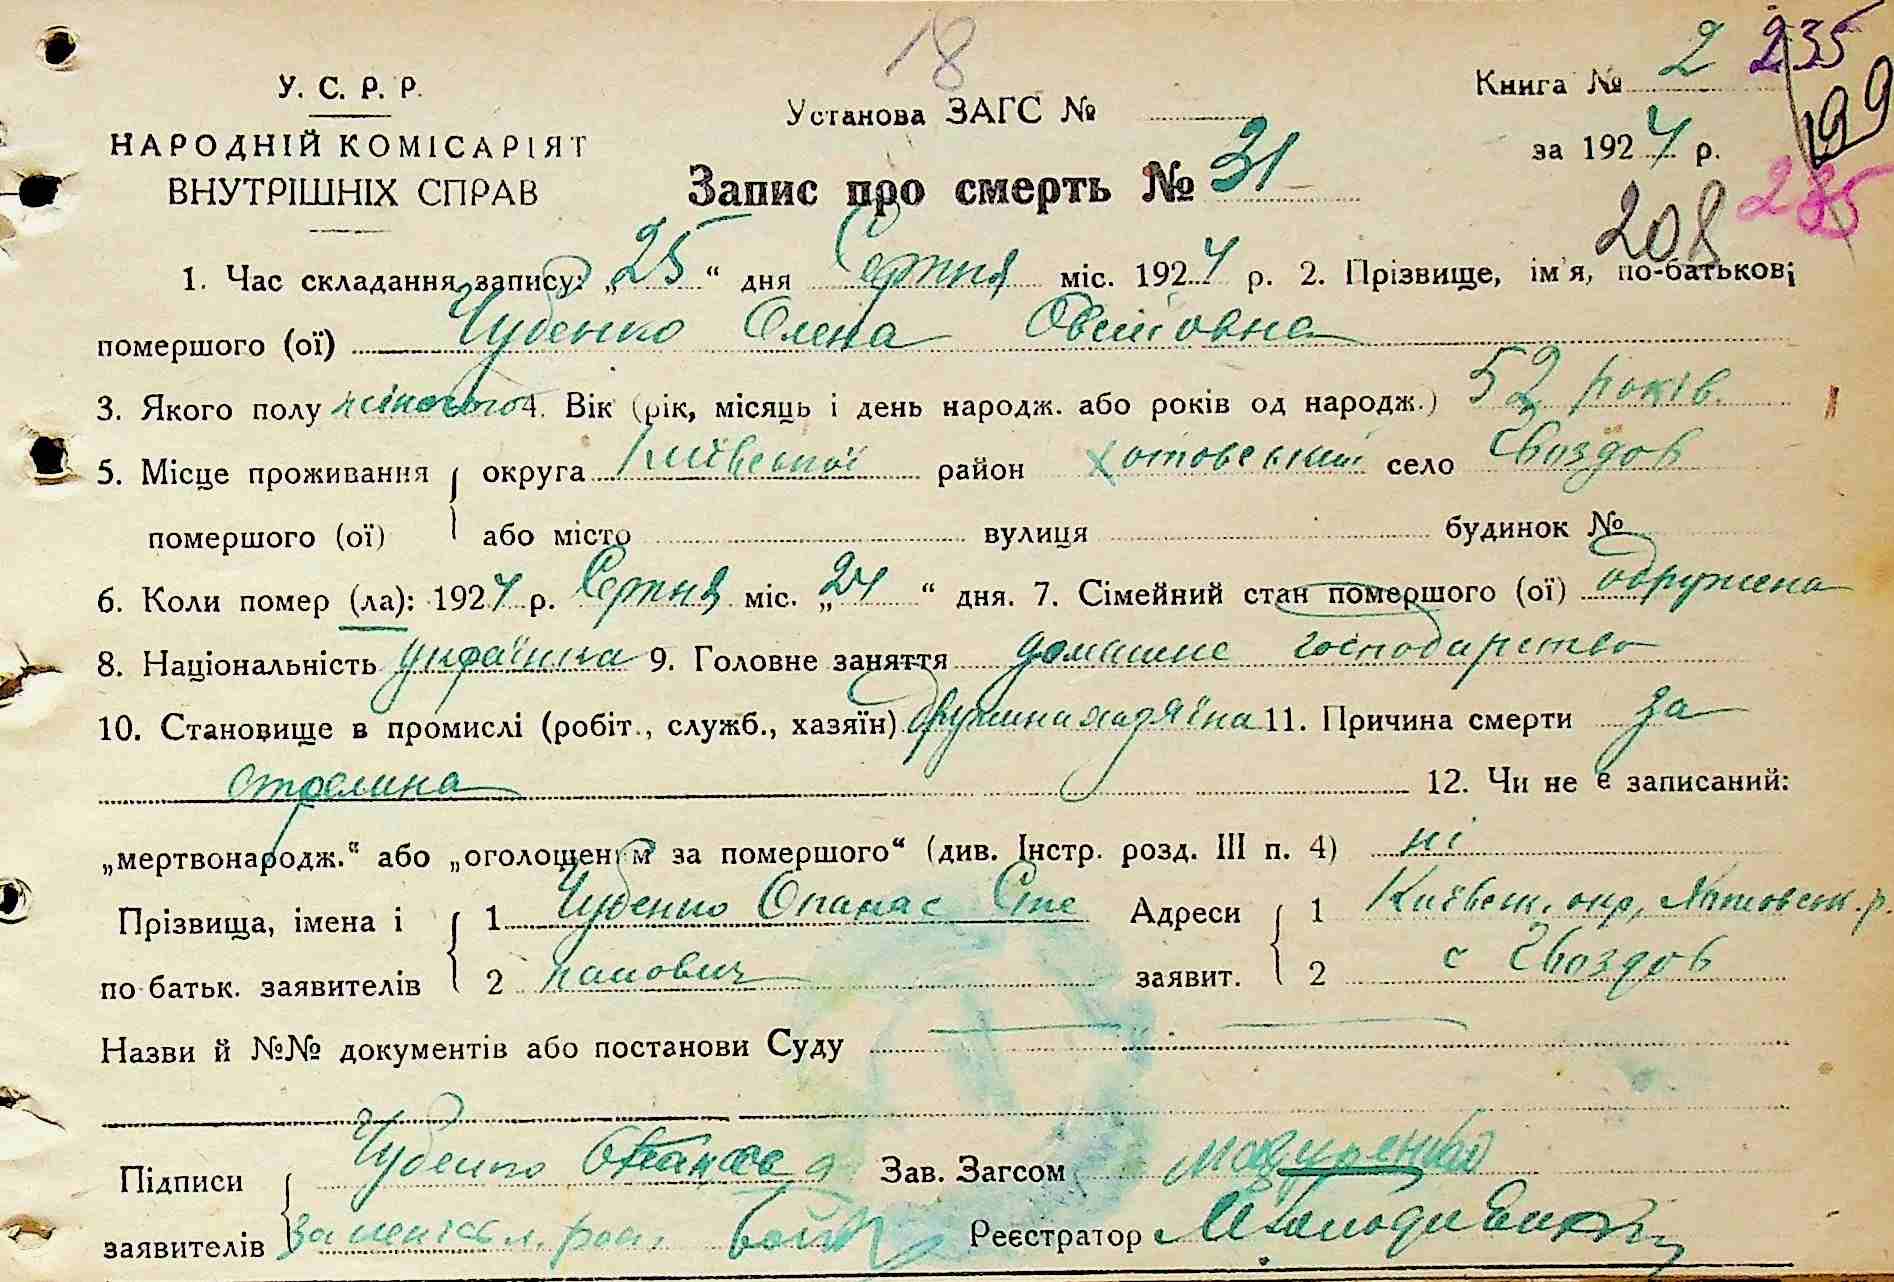 18
Книга № 2 235
У. С. Р. Р. Установа ЗАГС № 199
НАРОДНІЙ КОМІСАРІЯТ за 1924 р.
ВНУТРІШНІХ СПРАВ Запис про смерть № 31 235
208
1. Час складання запису: „25“ дня Серпня міс. 1924 р. 2. Прізвище, ім'я, по-батькові
помершого (ої) Чубенко Олена
3. Якого полу жіночого 4. Вік (рік, місяць і день народж. або років од народж.) 52 років.
5. Місце проживання округа Київської район Хотовський село Гвоздов
помершого (ої) або місто вулиця будинок №
6. Коли помер (ла): 1924 р. Серпня міс. „24“ дня. 7. Сімейний стан помершого (ої) одружена
8. Національність українка 9. Головне заняття домашне господарство
10. Становище в промислі (робіт., служб., хазяїн) дружина хазяїна 11. Причина смерти за
стрелина 12. Чи не є записаний:
„мертвонародж.“ або „оголошеним за помершого“ (див. Інстр. розд. III п. 4) ні
Прізвища, імена і 1 Чубенко Опанас Сте Адреси 1 Київськ. окр, Хотовськ. р.
по батьк. заявителів 2 панович заявит. 2 с Гвоздов
Назви й №№ документів або постанови Суду
Підписи Чубенко Зав. Загсом
заявителів Реєстратор